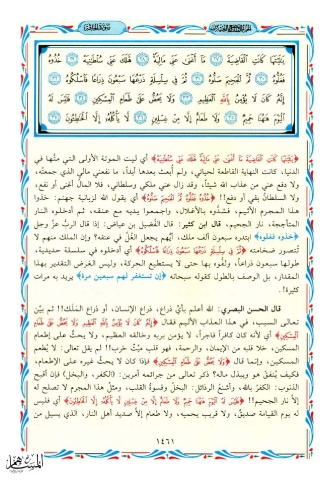 يَٰلَيْتَهَا كَانَتِ ٱلْقَاضِيَةَ ۝ مَآ أَغْنَىٰ عَنِّي مَالِيَهْ ۝ هَلَكَ عَنِّي سُلْطَٰنِيَهْ ۝ خُذُوهُ
فَغُلُّوهُ ۝ ثُمَّ ٱلْجَحِيمَ صَلُّوهُ ۝ ثُمَّ فِي سِلْسِلَةٍ ذَرْعُهَا سَبْعُونَ ذِرَاعًا فَٱسْلُكُوهُ ۝
إِنَّهُۥ كَانَ لَا يُؤْمِنُ بِٱللَّهِ ٱلْعَظِيمِ ۝ وَلَا يَحُضُّ عَلَىٰ طَعَامِ ٱلْمِسْكِينِ ۝ فَلَيْسَ لَهُ
ٱلْيَوْمَ هَٰهُنَا حَمِيمٌ ۝ وَلَا طَعَامٌ إِلَّا مِنْ غِسْلِينٍ ۝ لَّا يَأْكُلُهُۥٓ إِلَّا ٱلْخَٰطِـُٔونَ ۝
﴿يَٰلَيْتَهَا كَانَتِ ٱلْقَاضِيَةَ مَآ أَغْنَىٰ عَنِّي مَالِيَهْ هَلَكَ عَنِّي سُلْطَٰنِيَهْ﴾ أي ليت الموتة الأولى التي متُّها في
الدنيا، كانت النهاية القاطعة لحياتي، ولم أُبعث بعدها أبداً، ما نفعني مالي الذي جمعته،
ولا دفع عني من عذاب الله شيئاً، وقد زال عني ملكي وسلطاني، فلا المال أغنى أو نفع،
ولا السلطانُ بقي أو دفع!! ﴿خُذُوهُ فَغُلُّوهُ ثُمَّ ٱلْجَحِيمَ صَلُّوهُ﴾ أي يقول الله لزبانية جهنم: خذوا
هذا المجرم الأثيم، فشدُّوه بالأغلال، واجمعوا يديه مع عنقه، ثم أدخلوه النار
المتأججة، نار الجحيم، قال ابن كثير: قال الفضيل بن عياض: إذا قال الربُّ عزَّ وجل
﴿خذوه فغلوه﴾ ابتدره سبعون ألف ملك، أيُّهم يجعل الغُلَّ في عنقه؟ وإن الملك منهم لا
تُتصور ضخامته ﴿ثُمَّ فِي سِلْسِلَةٍ ذَرْعُهَا سَبْعُونَ ذِرَاعًا فَٱسْلُكُوهُ﴾ أي أدخلوه في سلسلة حديدية،
طولها سبعون ذراعاً، ولفُّوه بها حتى لا يستطيع الحركة، وليس الغرض التقدير بهذا
المقدار، بل الوصف بالطول كقوله سبحانه ﴿إن تستغفر لهم سبعين مرة﴾ يريد به مرات
كثيرة!.
قال الحسن البصري: الله أعلم بأيِّ ذراع، ذراع الإنسان، أو ذراع المَلَك!! ثم بيَّن
تعالى السبب، في هذا العذاب الأليم فقال ﴿إِنَّهُۥ كَانَ لَا يُؤْمِنُ بِٱللَّهِ ٱلْعَظِيمِ وَلَا يَحُضُّ عَلَىٰ طَعَامِ
ٱلْمِسْكِينِ﴾ أي لأنه كان كافراً فاجراً، لا يؤمن بربه وخالقه العظيم، ولا يحثُّ على إطعام
المسكين، خلا قلبه من الإيمان، والرحمة، فهو قلب ميِّت خَرِب!! لم يقل تعالى: لا يُطعم
المسكين، وإنما قال ﴿وَلَا يَحُضُّ عَلَىٰ طَعَامِ ٱلْمِسْكِينِ﴾ فإذا كان لا يحثُّ غيره على الإطعام،
فكيف يُنفق هو ويبذل ماله؟ ذكر تعالى من جرائمه أمرين: (الكفر، والبخل) فإن أقبح
الذنوب: الكفرُ بالله، وأشنعُ الرذائل: البخلُ وقسوةُ القلب، ومثلُ هذا المجرم لا تصلح له
إلَّا نار الجحيم!! ﴿فَلَيْسَ لَهُ ٱلْيَوْمَ هَٰهُنَا حَمِيمٌ وَلَا طَعَامٌ إِلَّا مِنْ غِسْلِينٍ لَّا يَأْكُلُهُۥٓ إِلَّا ٱلْخَٰطِـُٔونَ﴾ أي فليس
له يوم القيامة صديقٌ، ولا قريب يحميه، ولا طعام إلاَّ صديد أهل النار، الذي يسيل من
١٤٦١